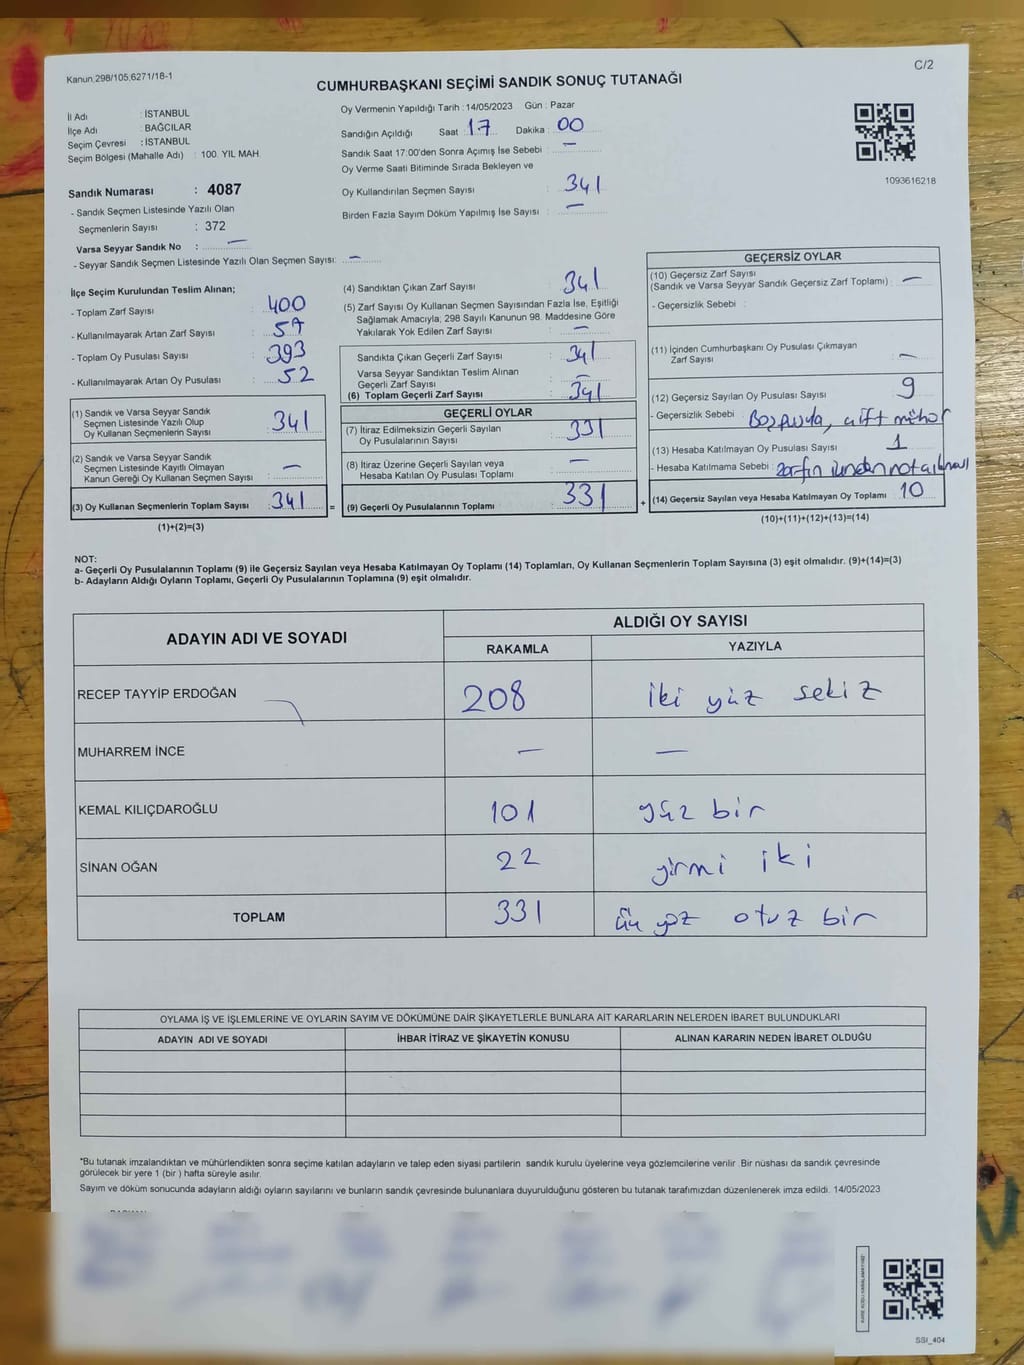 Kanun,298/105,6271/18-1
C/2
CUMHURBAŞKANI SEÇİMİ SANDIK SONUÇ TUTANAĞI
İl Adı : İSTANBUL
İlçe Adı : BAĞCILAR
Seçim Çevresi : İSTANBUL
Seçim Bölgesi (Mahalle Adı) : 100. YIL MAH.
Sandık Numarası : 4087
- Sandık Seçmen Listesinde Yazılı Olan
Seçmenlerin Sayısı : 372
Varsa Seyyar Sandık No : —
- Seyyar Sandık Seçmen Listesinde Yazılı Olan Seçmen Sayısı: —
Oy Vermenin Yapıldığı Tarih : 14/05/2023 Gün : Pazar
Sandığın Açıldığı Saat : 17 Dakika : 00
Sandık Saat 17:00'den Sonra Açımış İse Sebebi : —
Oy Verme Saati Bitiminde Sırada Bekleyen ve
Oy Kullandırılan Seçmen Sayısı : 341
Birden Fazla Sayım Döküm Yapılmış İse Sayısı : —
1093616218
İlçe Seçim Kurulundan Teslim Alınan;
- Toplam Zarf Sayısı : 400
- Kullanılmayarak Artan Zarf Sayısı :
- Toplam Oy Pusulası Sayısı : 393
- Kullanılmayarak Artan Oy Pusulası : 52
(1) Sandık ve Varsa Seyyar Sandık
Seçmen Listesinde Yazılı Olup
Oy Kullanan Seçmenlerin Sayısı : 341
(2) Sandık ve Varsa Seyyar Sandık
Seçmen Listesinde Kayıtlı Olmayan
Kanun Gereği Oy Kullanan Seçmen Sayısı : —
(3) Oy Kullanan Seçmenlerin Toplam Sayısı : 341 =
(1)+(2)=(3)
(4) Sandıktan Çıkan Zarf Sayısı : 341
(5) Zarf Sayısı Oy Kullanan Seçmen Sayısından Fazla İse, Eşitliği
Sağlamak Amacıyla; 298 Sayılı Kanunun 98. Maddesine Göre
Yakılarak Yok Edilen Zarf Sayısı : —
Sandıkta Çıkan Geçerli Zarf Sayısı : 341
Varsa Seyyar Sandıktan Teslim Alınan
Geçerli Zarf Sayısı : —
(6) Toplam Geçerli Zarf Sayısı : 341
GEÇERLİ OYLAR
(7) İtiraz Edilmeksizin Geçerli Sayılan
Oy Pusulalarının Sayısı : 331
(8) İtiraz Üzerine Geçerli Sayılan veya
Hesaba Katılan Oy Pusulası Toplamı : —
(9) Geçerli Oy Pusulalarının Toplamı : 331 +
GEÇERSİZ OYLAR
(10) Geçersiz Zarf Sayısı
(Sandık ve Varsa Seyyar Sandık Geçersiz Zarf Toplamı) : —
- Geçersizlik Sebebi :
(11) İçinden Cumhurbaşkanı Oy Pusulası Çıkmayan
Zarf Sayısı : —
(12) Geçersiz Sayılan Oy Pusulası Sayısı : 9
- Geçersizlik Sebebi : çift mühür
(13) Hesaba Katılmayan Oy Pusulası Sayısı : 1
- Hesaba Katılmama Sebebi : zarfın
(14) Geçersiz Sayılan veya Hesaba Katılmayan Oy Toplamı : 10
(10)+(11)+(12)+(13)=(14)
NOT:
a- Geçerli Oy Pusulalarının Toplamı (9) ile Geçersiz Sayılan veya Hesaba Katılmayan Oy Toplamı (14) Toplamları, Oy Kullanan Seçmenlerin Toplam Sayısına (3) eşit olmalıdır. (9)+(14)=(3)
b- Adayların Aldığı Oyların Toplamı, Geçerli Oy Pusulalarının Toplamına (9) eşit olmalıdır.
ADAYIN ADI VE SOYADI
ALDIĞI OY SAYISI
RAKAMLA YAZIYLA
RECEP TAYYİP ERDOĞAN 208 iki yüz sekiz
MUHARREM İNCE — —
KEMAL KILIÇDAROĞLU 101 yüz bir
SİNAN OĞAN 22 yirmi iki
TOPLAM 331 üç yüz otuz bir
OYLAMA İŞ VE İŞLEMLERİNE VE OYLARIN SAYIM VE DÖKÜMÜNE DAİR ŞİKAYETLERLE BUNLARA AİT KARARLARIN NELERDEN İBARET BULUNDUKLARI
ADAYIN ADI VE SOYADI İHBAR İTİRAZ VE ŞİKAYETİN KONUSU ALINAN KARARIN NEDEN İBARET OLDUĞU
*Bu tutanak imzalandıktan ve mühürlendikten sonra seçime katılan adayların ve talep eden siyasi partilerin sandık kurulu üyelerine veya gözlemcilerine verilir. Bir nüshası da sandık çevresinde
görülecek bir yere 1 (bir ) hafta süreyle asılır.
Sayım ve döküm sonucunda adayların aldığı oyların sayılarını ve bunların sandık çevresinde bulunanlara duyurulduğunu gösteren bu tutanak tarafımızdan düzenlenerek imza edildi. 14/05/2023
SSI_404